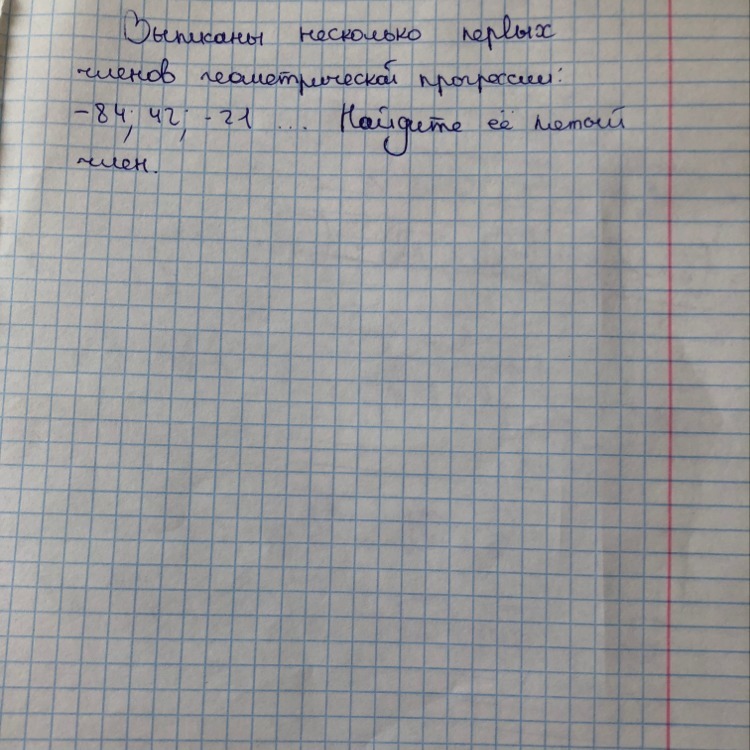 Выписаны несколько первых
членов геометрической прогрессии:
-84; 42; -21 ... Найдите её пятый
член.